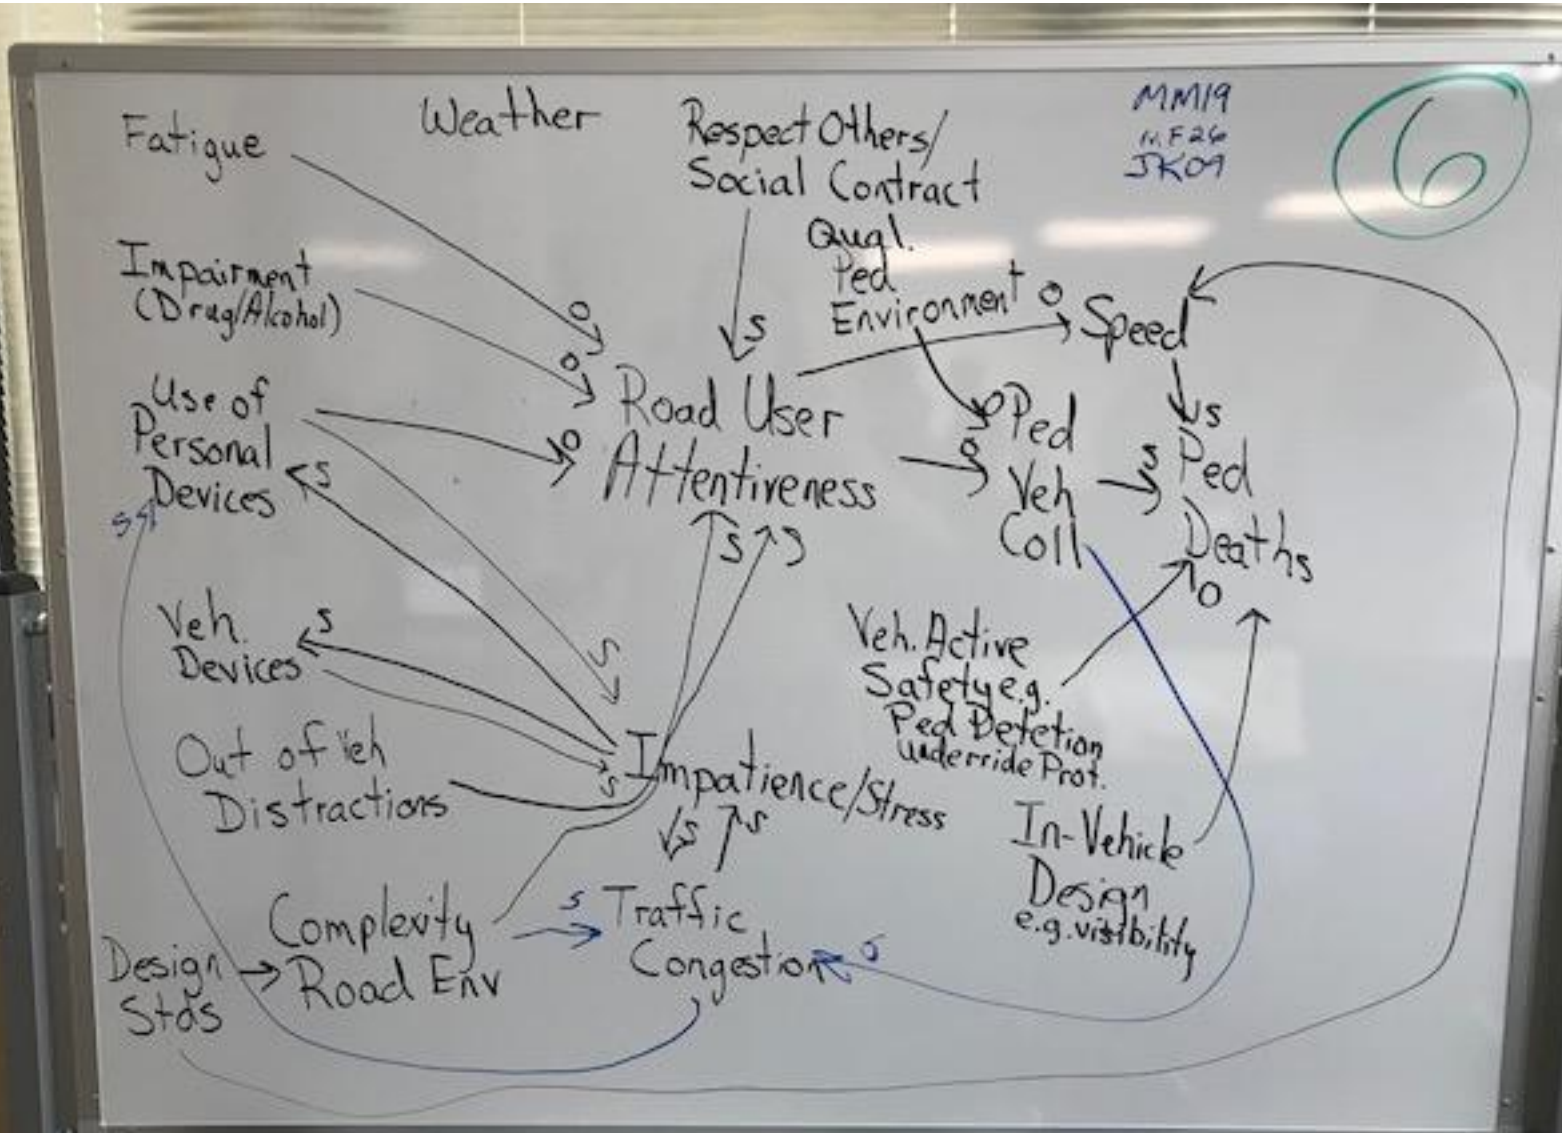 Fatigue
Weather
Respect Others/
Social Contract
MM19
JK09
6
Impairment
(Drug/Alcohol)
Qual.
Ped
Environment
o
o
s
o
Speed
Use of
Personal
Devices
s
o
Road User
Attentiveness
o
o
Ped
Veh
Coll
s
s
Ped
Deaths
s
s
o
Veh.
Devices
s
s
s
Veh. Active
Safety e.g.
Ped Detetion
underride Prot.
Out of Veh
Distractions
Impatience/Stress
s
s
In-Vehicle
Design
e.g. visibility
Complexity
Road Env
s
Traffic
Congestion
Design
Stds